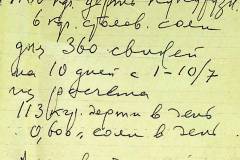 6 кгр. столов. соли
для 360 свиней
на 10 дней с 1-10/7
из расчета
113 кгр. дерти в день
0,600 " соли в день.